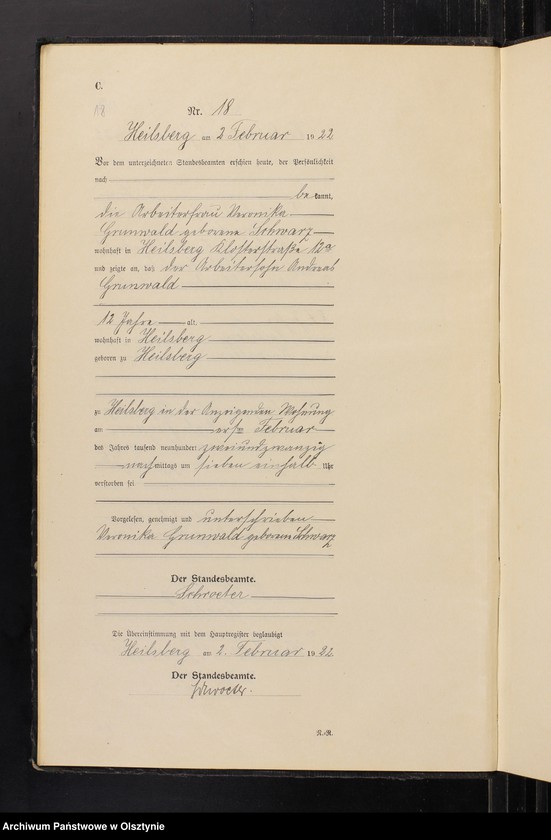 C.
18
Nr. 18
Heilsberg am 2 Februar 1922
Vor dem unterzeichneten Standesbeamten erschien heute, der Persönlichkeit
nach
be kannt,
die Arbeiterfrau Veronika
Grunwald geborene Schwarz
wohnhaft in Heilsberg Klosterstraße 12a
und zeigte an, daß der Arbeitersohn Andreas
Grunwald
12 Jahre alt,
wohnhaft in Heilsberg
geboren zu Heilsberg
zu Heilsberg in der Anzeigenden Wohnung
am ersten Februar
des Jahres tausend neunhundert zweiundzwanzig
nachmittags um sieben einhalb Uhr
verstorben sei
Vorgelesen, genehmigt und unterschrieben
Veronika Grunwald geborene Schwarz
Der Standesbeamte.
Schroeter
Die Übereinstimmung mit dem Hauptregister beglaubigt
Heilsberg am 2. Februar 1922
Der Standesbeamte.
Schroeter.
R.-R.
Archiwum Państwowe w Olsztynie